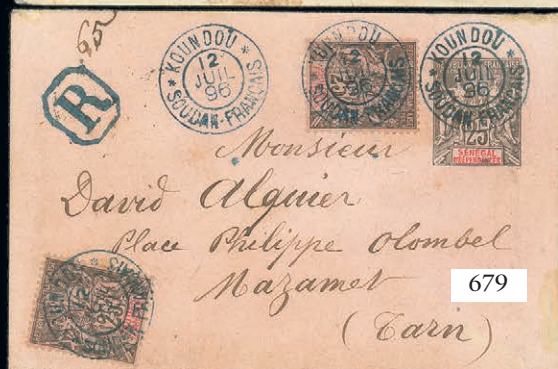 65
R
KOUNDOU
12
JUIL
96
SOUDAN-FRANÇAIS
KOUNDOU
12
JUIL
96
SOUDAN-FRANÇAIS
25
KOUNDOU
12
JUIL
96
SOUDAN-FRANÇAIS
25
SÉNÉGAL
ET DÉPENDANCES
Monsieur
David Alquier
Place Philippe Olombel
Mazamet
(Tarn)
679
12
25